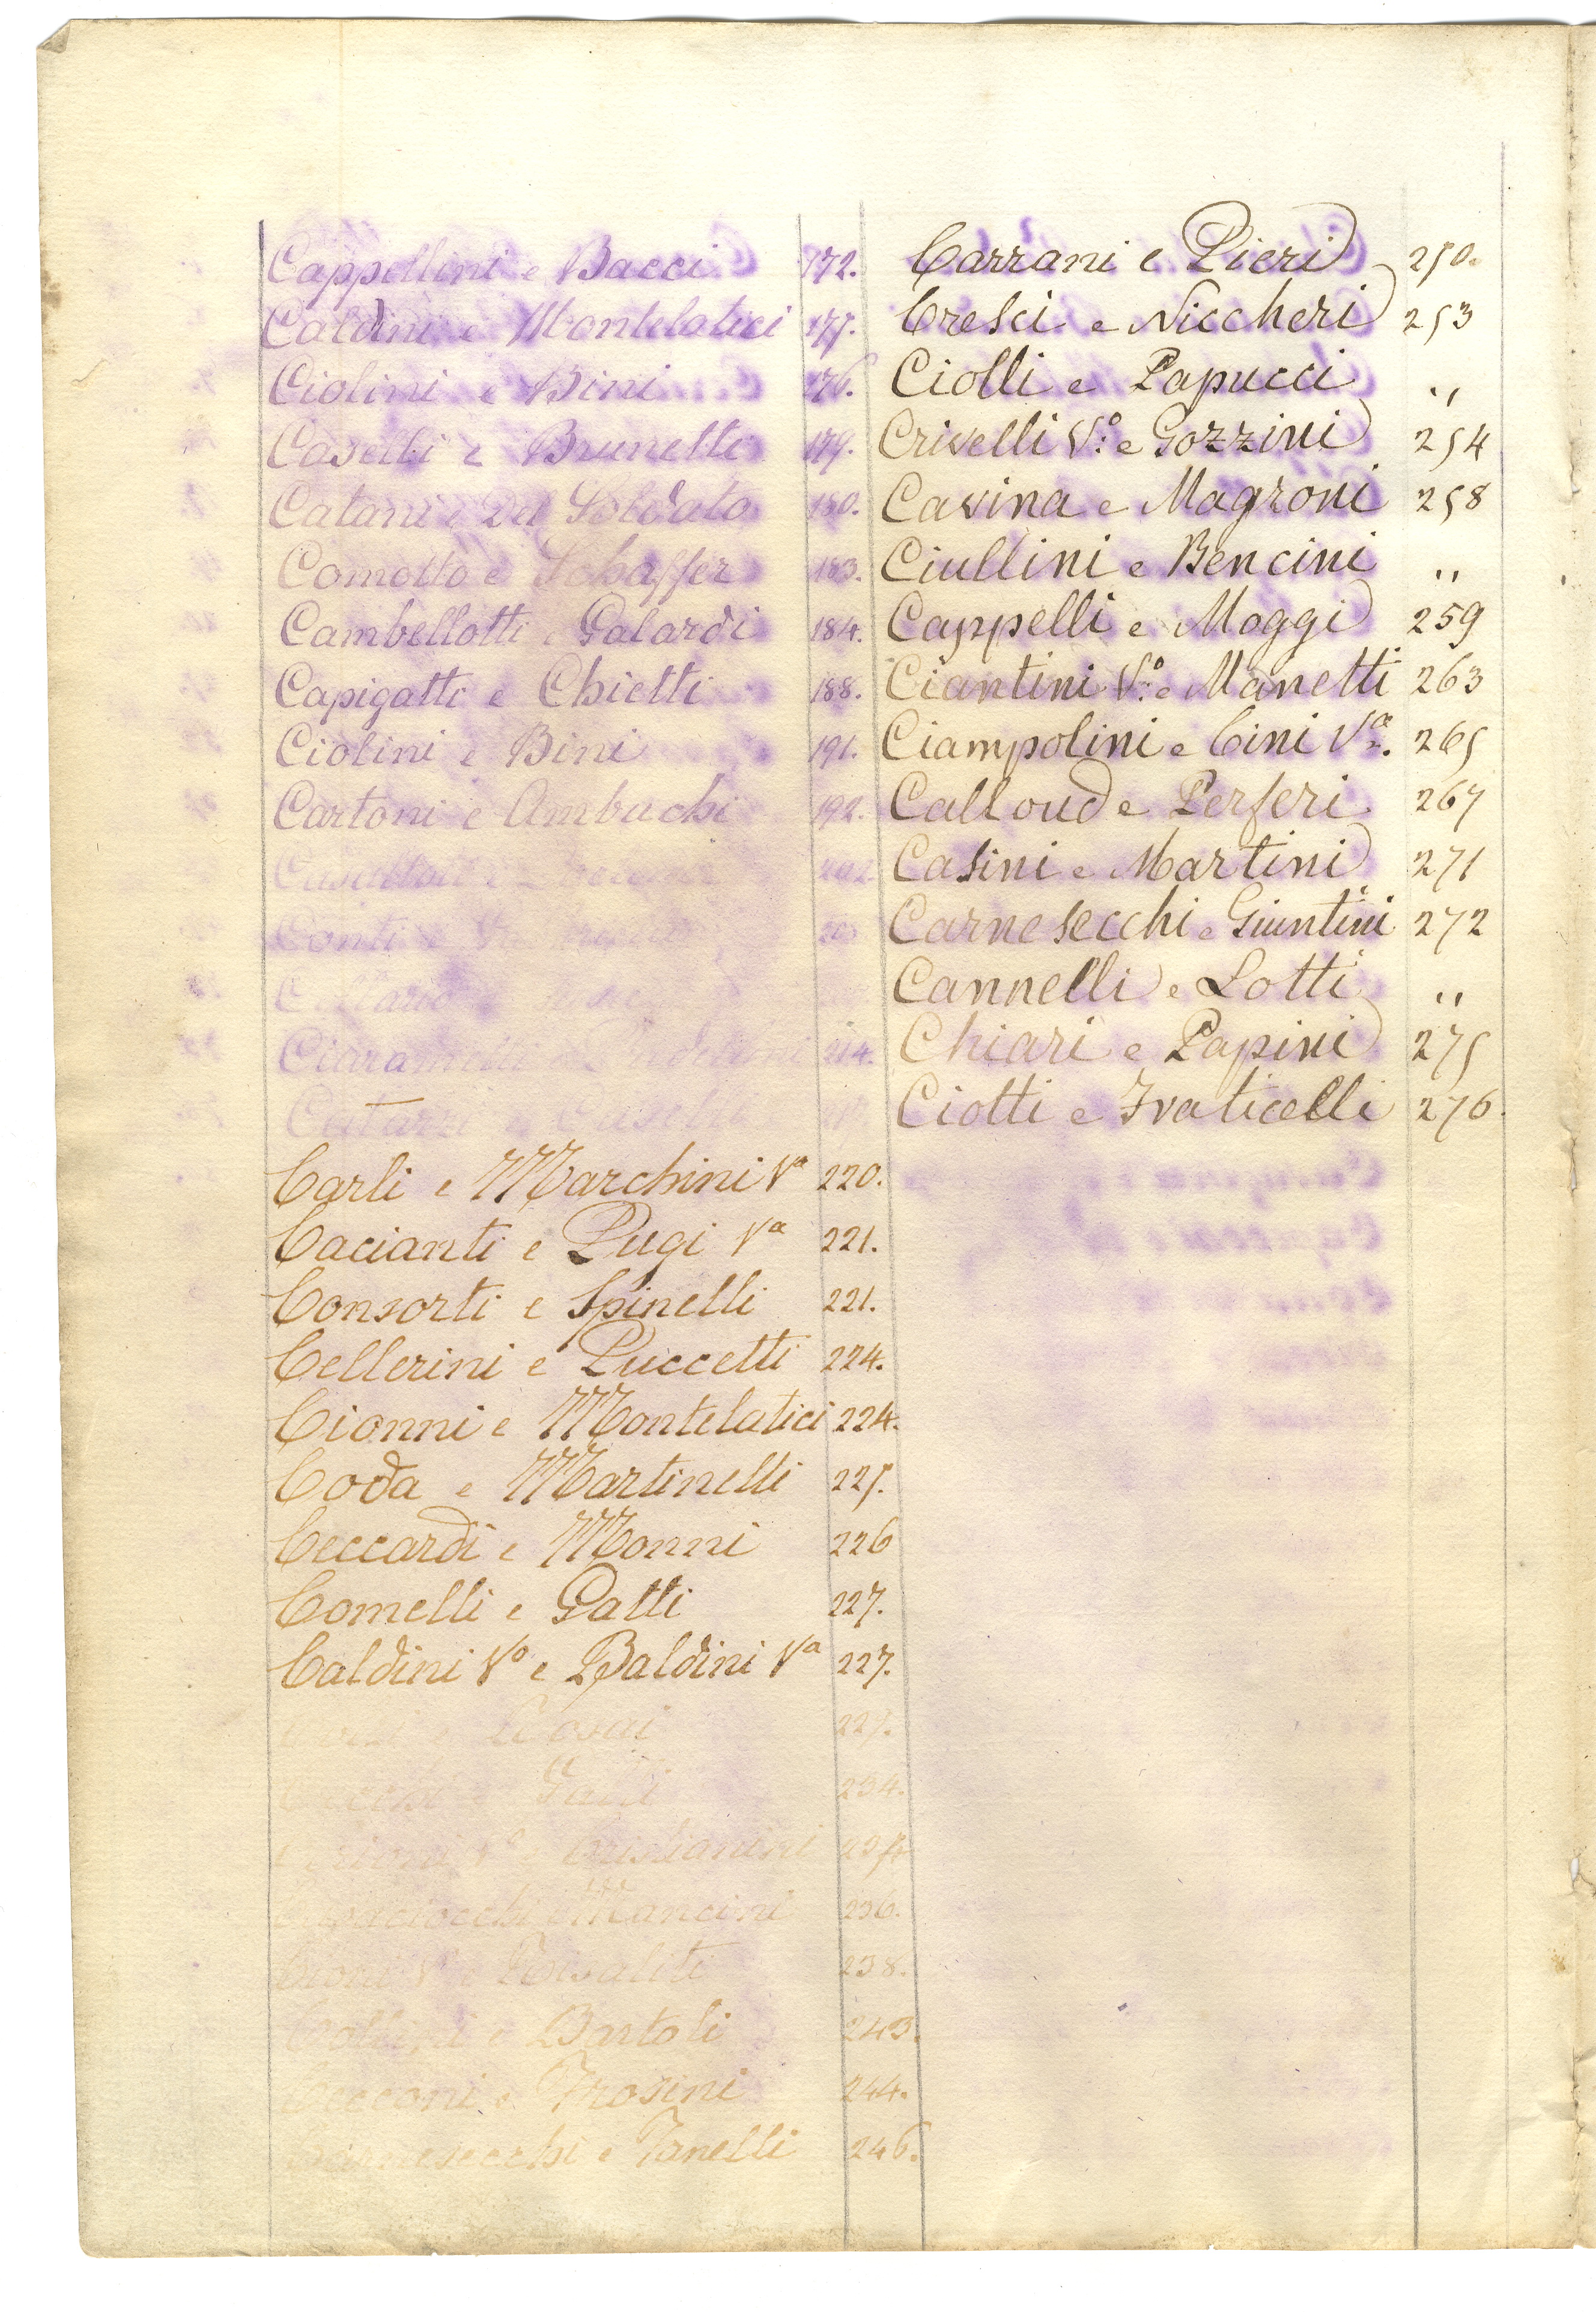 Cappellini e Bacci 172.
Caldini e Montelatici 175.
Ciolini e Bini 176.
Caselli e Brunetti 179.
Catani e Del Soldato 180.
Comotto e Schaffer 183.
Cambellotti e Galardi 184.
Capigatti e Chietti 188.
Ciolini e Bini 191.
Cartoni e Ambuchi 192.
202
Conti e
214.
Carli e Marchini Vª 220.
Cacianti e Pugi Vª 221.
Consorti e Spinelli 221.
Cellerini e Puccetti 224.
Cionni e Montelatici 224.
Coda e Martinelli 225.
Ceccardi e Monni 226
Comelli e Gatti 227.
Caldini Vº e Baldini Vª 227.
227.
234.
Vº e Cristianini 234
e Mancini 236.
Vº e Risaliti 238.
e Bartoli 243.
Cecconi e Frosini 244.
Carnesecchi e Fanelli 246.
Carrani e Pieri 250.
Cresci e Niccheri 253
Ciolli e Papucci "
Crivelli Vº e Gozzini 254
Cavina e Magroni 258
Ciullini e Bencini "
Cappelli e Moggi 259
Ciantini Vº e Manetti 263
Ciampolini e Cini Vª. 265
Calloud e Perferi 267
Casini e Martini 271
Carnesecchi e Giuntini 272
Cannelli e Lotti "
Chiari e Papini 275
Ciotti e Fraticelli 276.